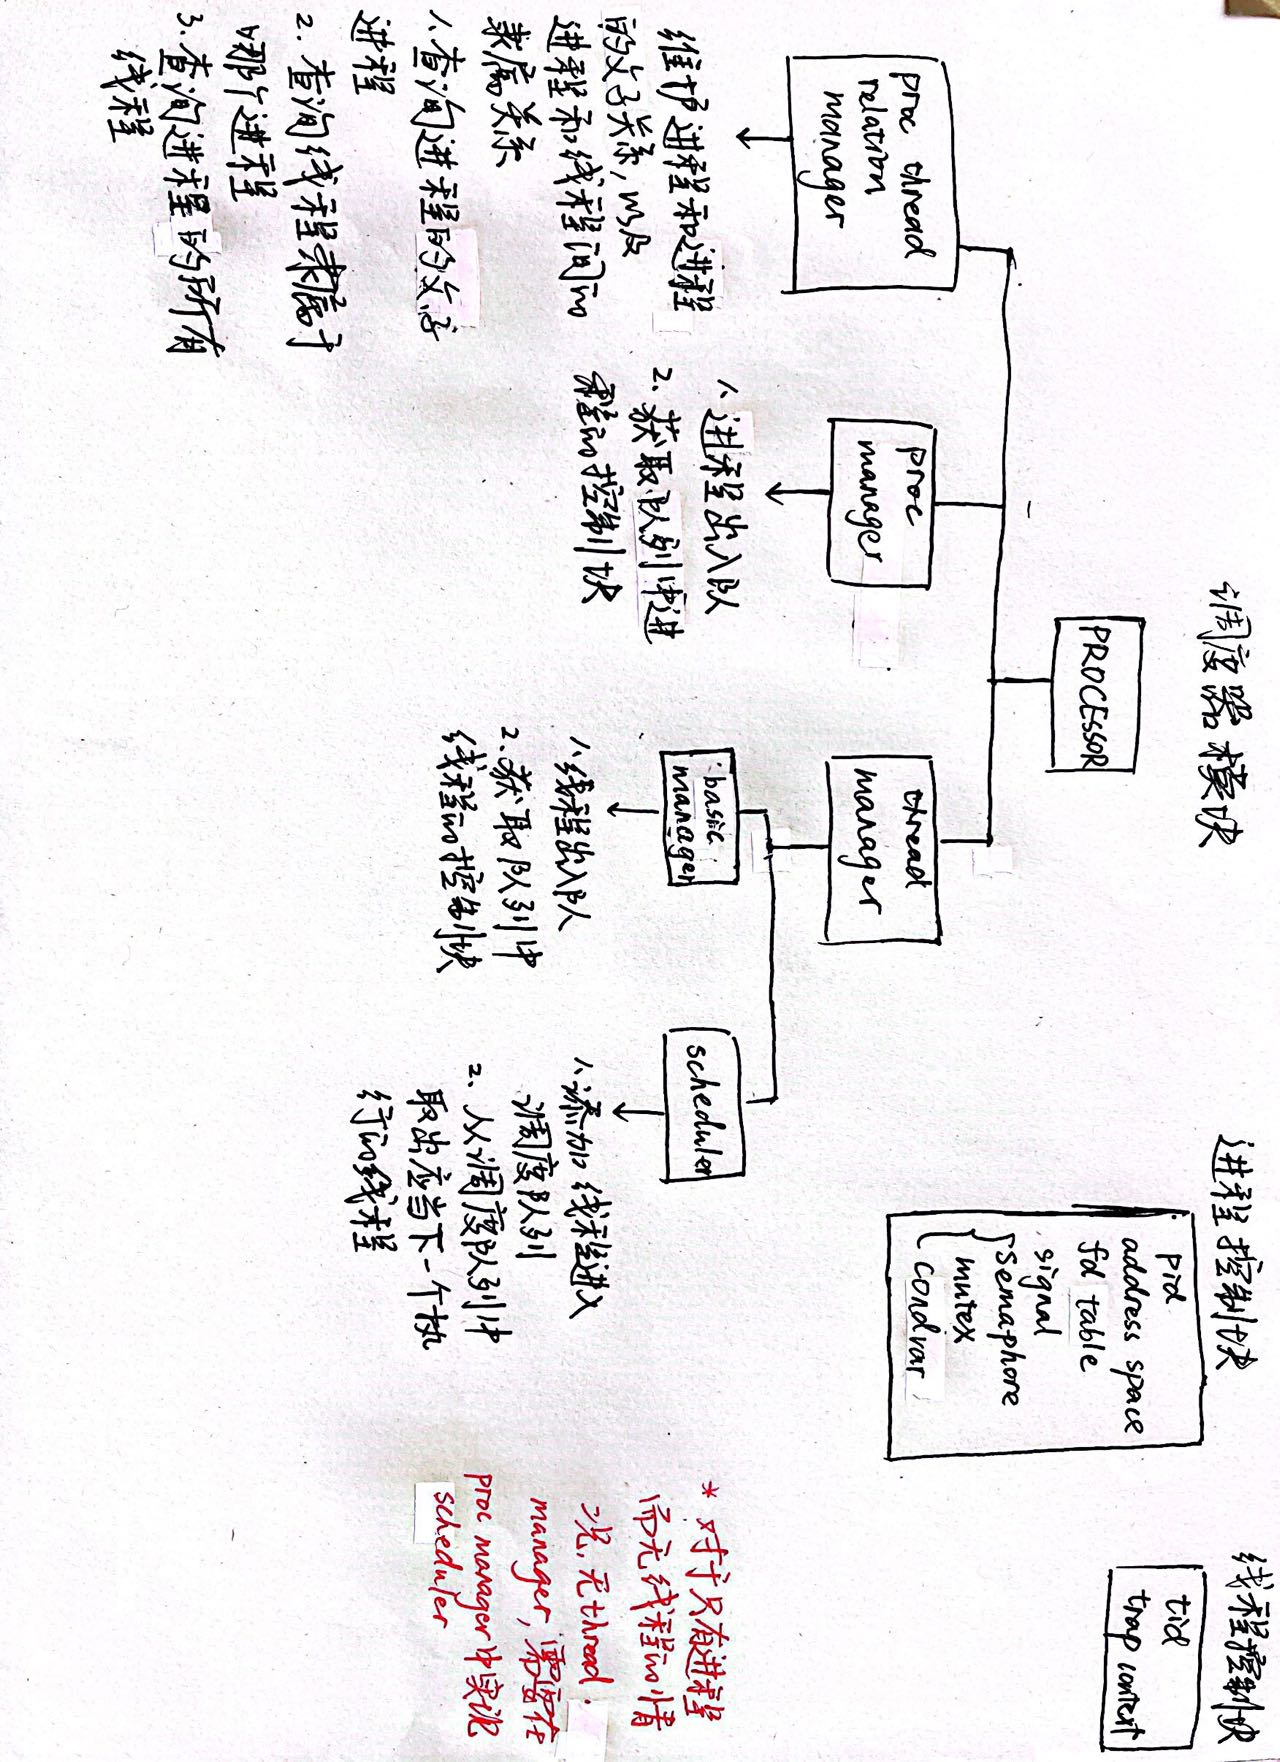 调度器模块
PROCESSOR
proc thread
relation
manager
维护进程和进程
的父子关系,以及
进程和线程间的
隶属关系
1、查询进程的父子
进程
2. 查询线程隶属于
哪个进程
3. 查询进程的所有
线程
proc
manager
1、进程出入队
2. 获取队列中进
程的控制块
thread
manager
basic
manager
1、线程出入队
2. 获取队列中
线程的控制块
scheduler
1、添加线程进入
调度队列
2. 从调度队列中
取出应当下一个执
行的线程
进程控制块
pid
address space
fd table
signal
semaphore
mutex
condvar
线程控制块
tid
trap context
* 对于只有进程
而无线程的情
况,无thread
manager,需要在
proc manager中实现
scheduler